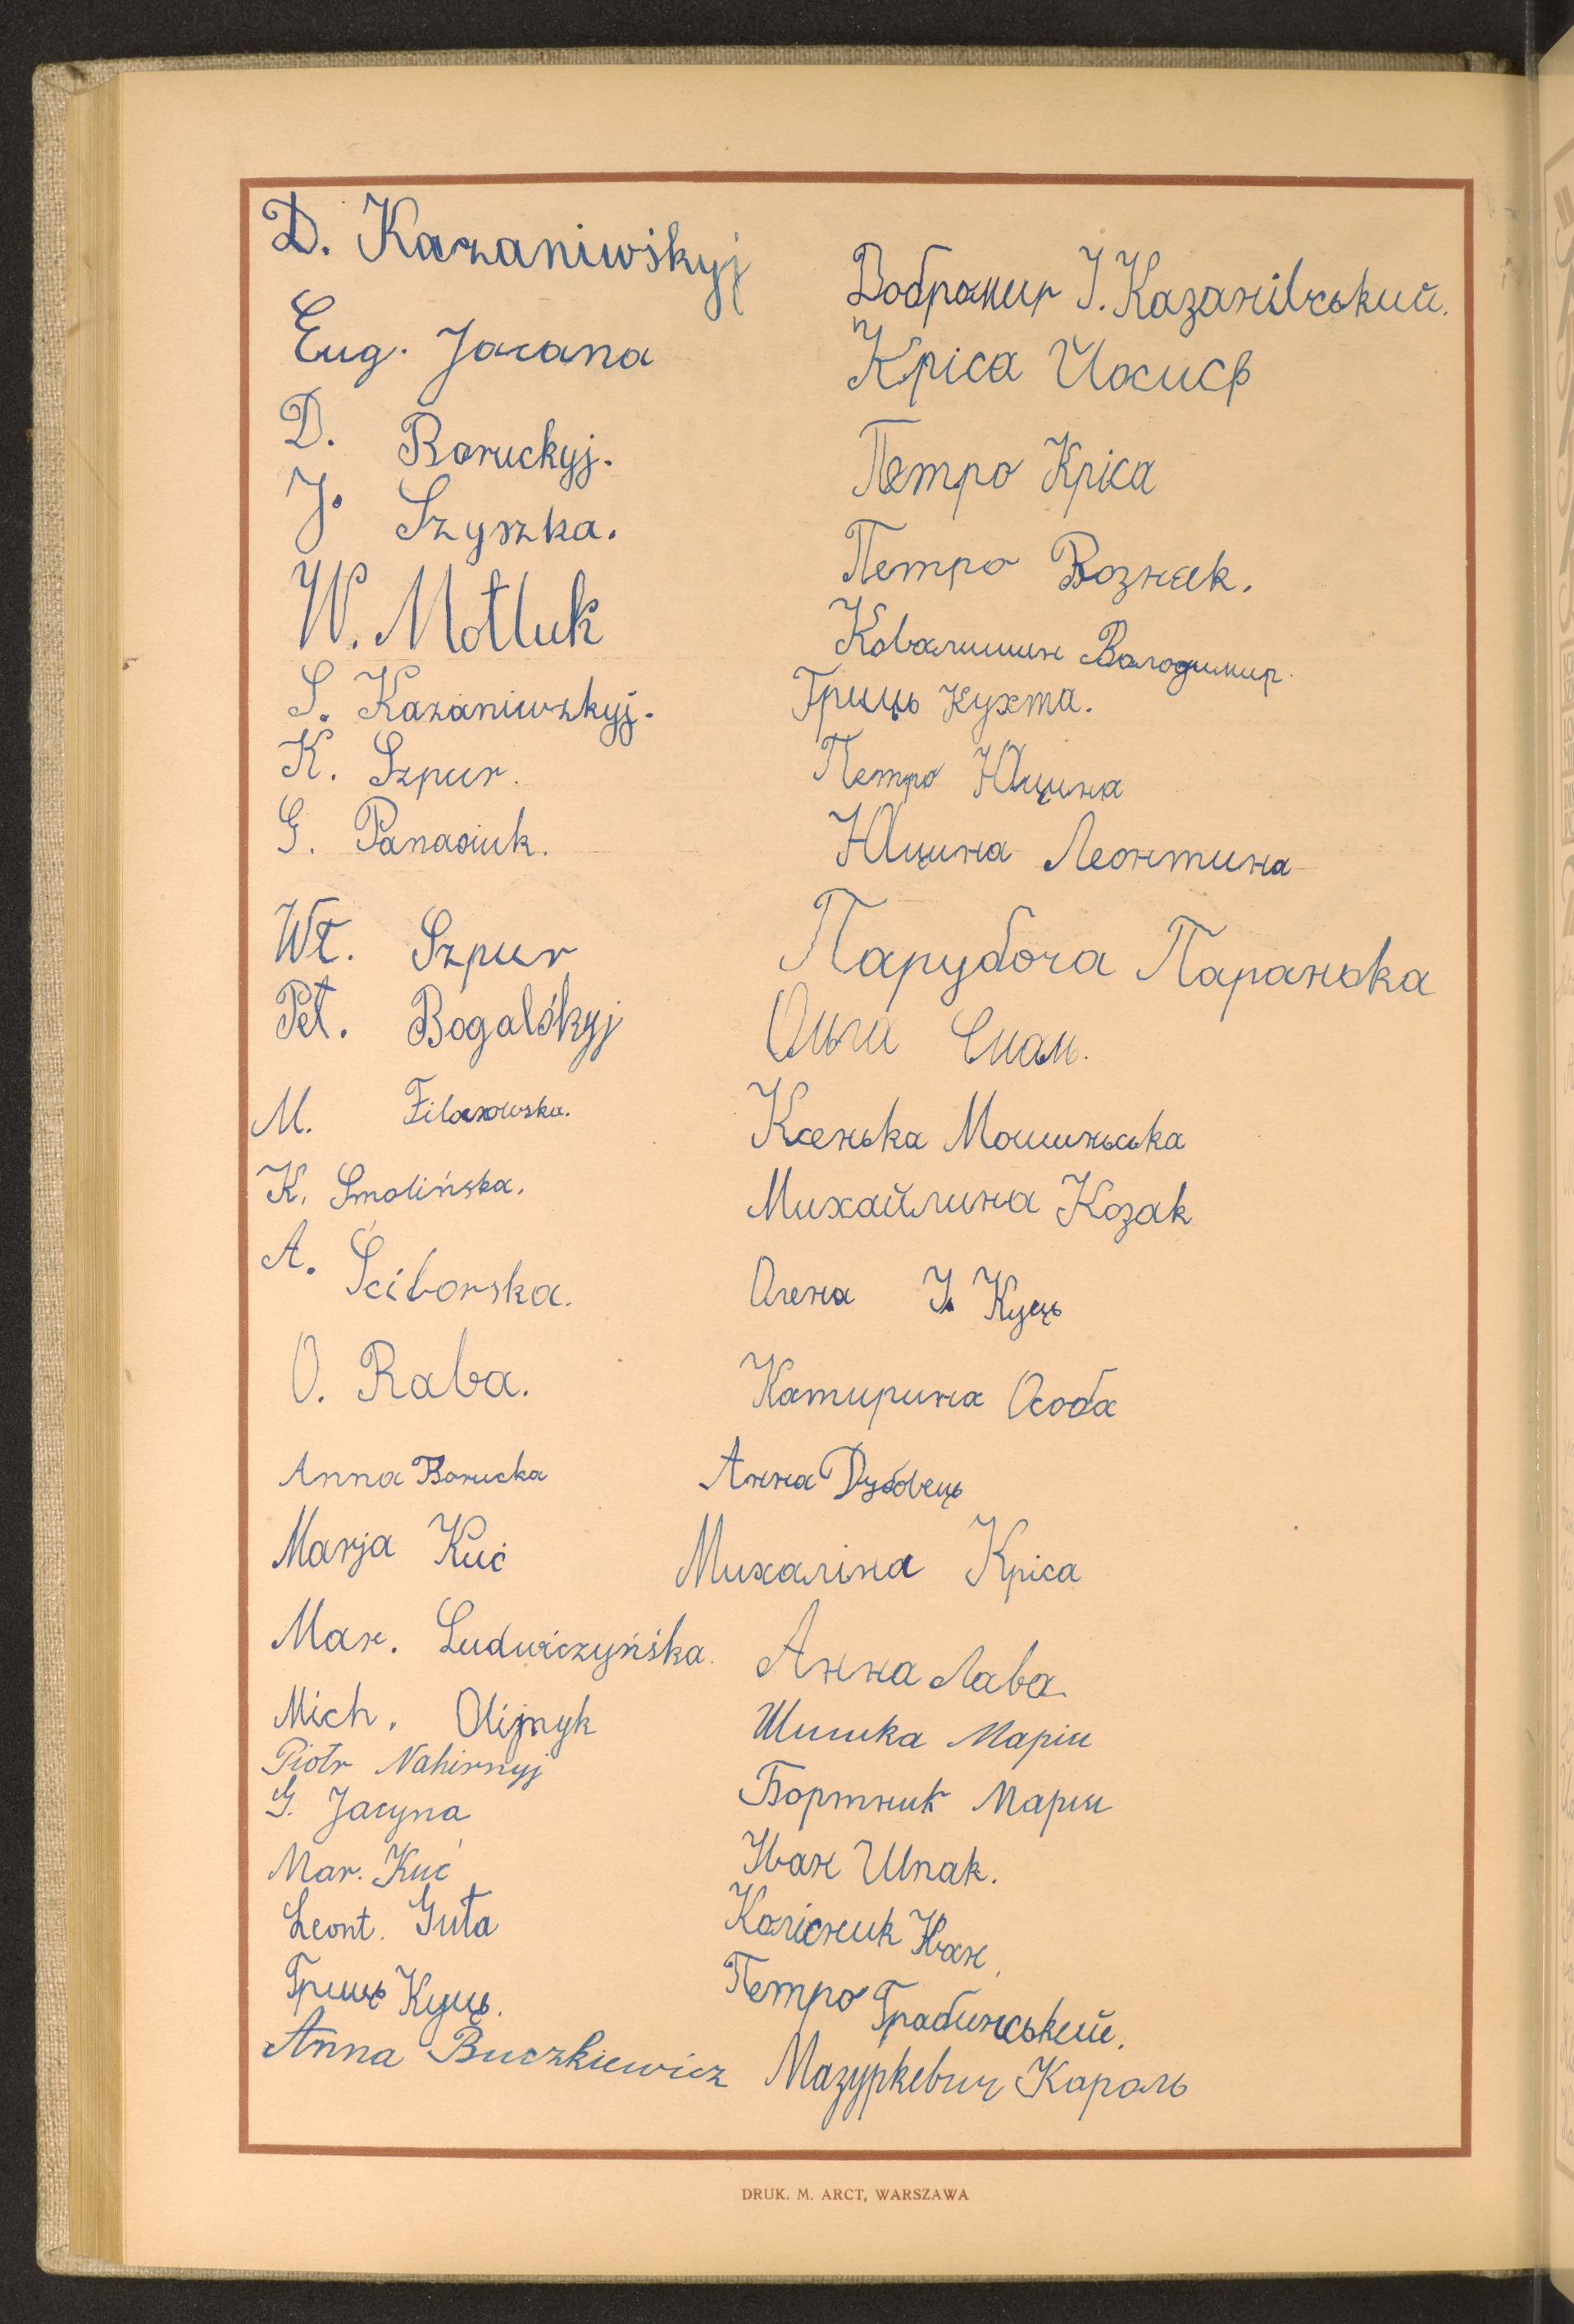 D. Kazaniwśkyj
Eug. Jacana
D. Boruckyj.
J. Szyszka.
W. Motluk
S. Kazaniwzkyj.
K. Szpur.
G. Panasiuk.
Wł. Szpur
Pet. Bogalśkyj
M. Filasowska.
K. Smolińska.
A. Ściborska.
O. Raba.
Anna Borucka
Marja Kuć
Mar. Ludwiczyńśka.
Mich. Olijnyk
Piotr Nahirnyj
G. Jacyna
Mar. Kuć
Leont. Guta
Гриць Куць.
Anna Buczkiewicz
Добромир І. Казанівський.
Кріса Йосиф
Петро Кріса
Петро Возняк.
Ковалишин Володимир.
Гриць Кухта.
Петро Юцина
Юцина Леонтина
Парубоча Паранька
Ольга
Ксенька Мошинська
Михайлина Козак
Олена І. Куць
Катирина Особа
Анна Дубовець
Михаліна Кріса
Анна Лаба
Шишка Марія
Бортник Марія
Іван Шпак.
Колісник Іван.
Петро Грабинський.
Мазуркевич Кароль
DRUK. M. ARCT, WARSZAWA